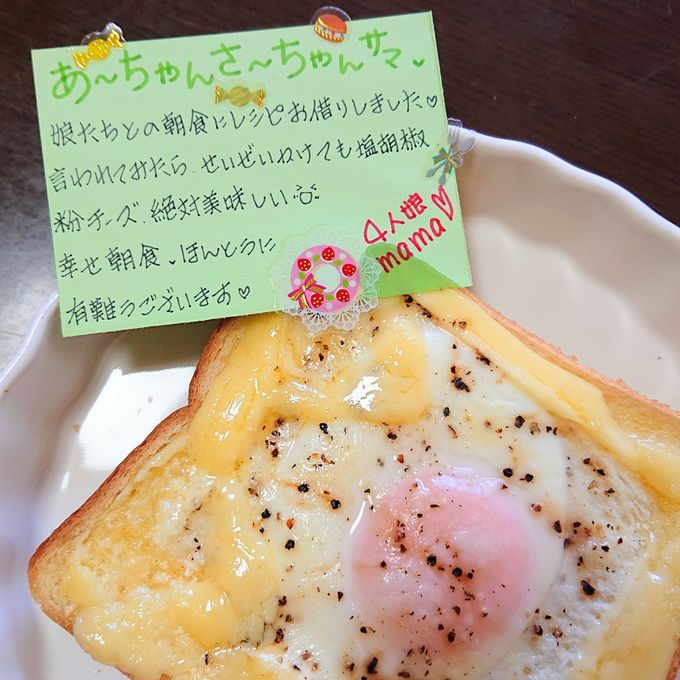 あ〜ちゃんさ〜ちゃんサマ、
娘たちとの朝食にレシピお借りしました♡
言われてみたら、せいぜいかけても塩胡椒
粉チーズ、絶対美味しい
幸せ朝食、ほんとうに
有難うございます♡
4人娘
mama♡